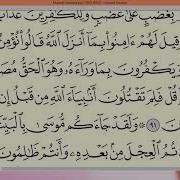 بِغَضَبٍ عَلَىٰ غَضَبٍ وَلِلْكَٰفِرِينَ عَذَاب
قِيلَ لَهُمْ ءَامِنُوا۟ بِمَآ أَنزَلَ ٱللَّهُ قَالُوا۟ نُؤْمِ
يَكْفُرُونَ بِمَا وَرَآءَهُۥ وَهُوَ ٱلْحَقُّ مُصَ
قُلْ فَلِمَ تَقْتُلُونَ أَنۢبِيَآءَ ٱللَّهِ مِن قَبْلُ إِن
٩١ ۞ وَلَقَدْ جَآءَكُم مُّوسَىٰ بِٱلْبَيِّ
تُمُ ٱلْعِجْلَ مِنۢ بَعْدِهِۦ وَأَنتُمْ ظَٰلِمُونَ